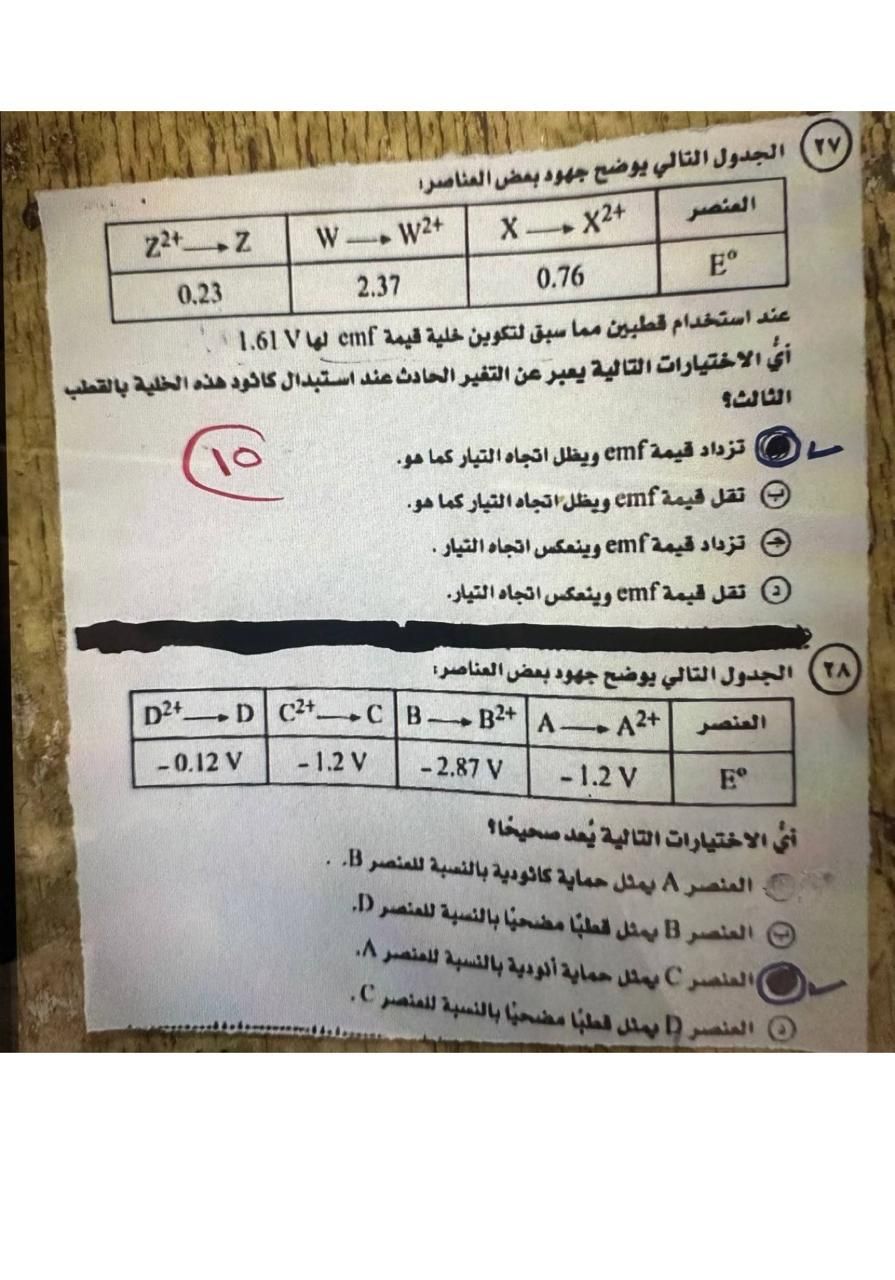 ٢٧ الجدول التالي يوضح جهود بعض العناصر:
العنصر X ⟶ X²⁺ W ⟶ W²⁺ Z²⁺ ⟶ Z
E° 0.76 2.37 0.23
عند استخدام قطبين مما سبق لتكوين خلية قيمة emf لها 1.61 V
أيُّ الاختيارات التالية يعبر عن التغير الحادث عند استبدال كاثود هذه الخلية بالقطب
الثالث؟
تزداد قيمة emf ويظل اتجاه التيار كما هو.
ب تقل قيمة emf ويظل اتجاه التيار كما هو.
جـ تزداد قيمة emf وينعكس اتجاه التيار .
د تقل قيمة emf وينعكس اتجاه التيار.
١٥
٢٨ الجدول التالي يوضح جهود بعض العناصر:
العنصر A ⟶ A²⁺ B ⟶ B²⁺ C²⁺ ⟶ C D²⁺ ⟶ D
E° – 1.2 V – 2.87 V – 1.2 V – 0.12 V
أيُّ الاختيارات التالية يُعد صحيحًا؟
العنصر A يمثل حماية كاثودية بالنسبة للعنصر B.
ب العنصر B يمثل قطبًا مضحيًا بالنسبة للعنصر D.
العنصر C يمثل حماية أنودية بالنسبة للعنصر A.
د العنصر D يمثل قطبًا مضحيًا بالنسبة للعنصر C.